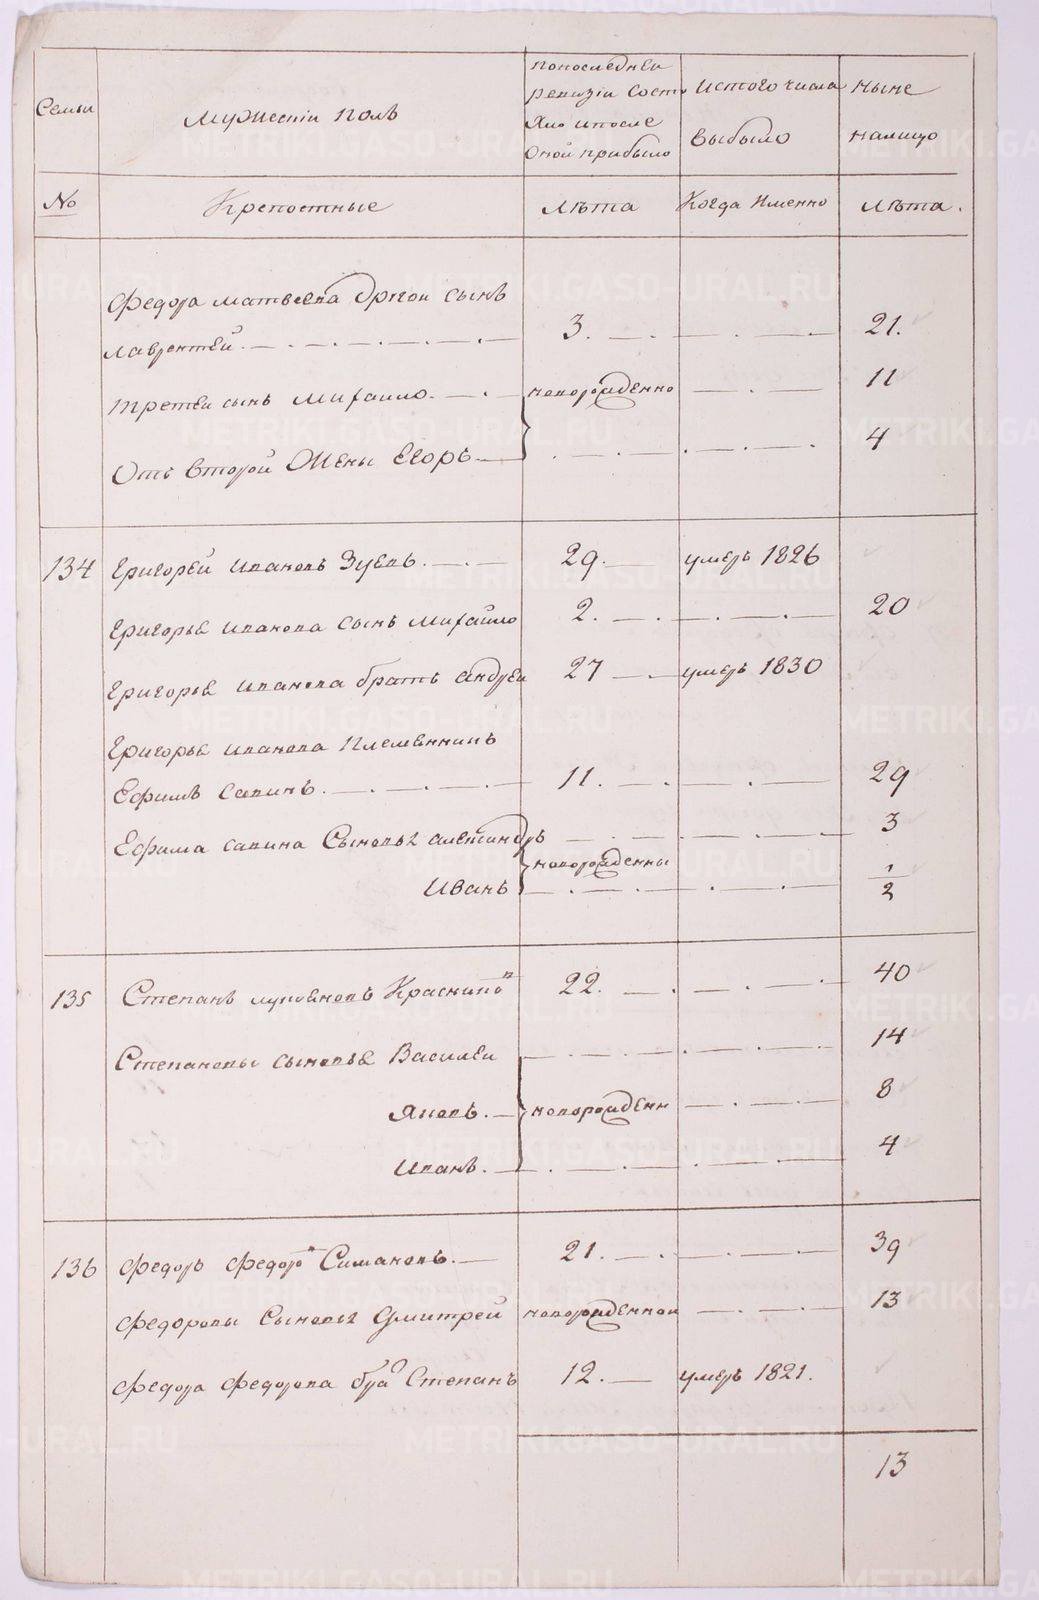 Семьи
мужескій полъ
Попоследнеи
ревизіи сост
яло ипосле
Оной прибыло
истого числа
выбыло
ныне
налицо
No
Крепостные
лѣта
Когда Именно
лѣта.
Федора матвеева другои сынъ
лаврентей. 3. 21.
третеи сынъ михаило. новорожденно 11
Отъ второй Жены Егоръ 4
134 Григорей ивановъ Зуевъ. 29. умеръ 1826
Григорьѣ иванова сынъ михаило 2. 20
Григорьѣ иванова братъ андреи 27 умеръ 1830
Григорьѣ иванова племѣнникъ
Ефимъ савинъ. 11. 29
Ефима савина Сыновьѣ александръ 3
новорожденны
Иванъ 1/2
135 Степанъ Красипо 22. 40
Степановы сыновьѣ Василеи 14
Яковъ. новорожденн 8
иванъ. 4
136 Федоръ Федоро Симановъ. 21. 39
Федоровы Сыновьѣ Дмитрей новорожденнои 13
Федора Федорова бра Степанъ 12. умеръ 1821.
13
METRIKI.GASO-URAL.RU